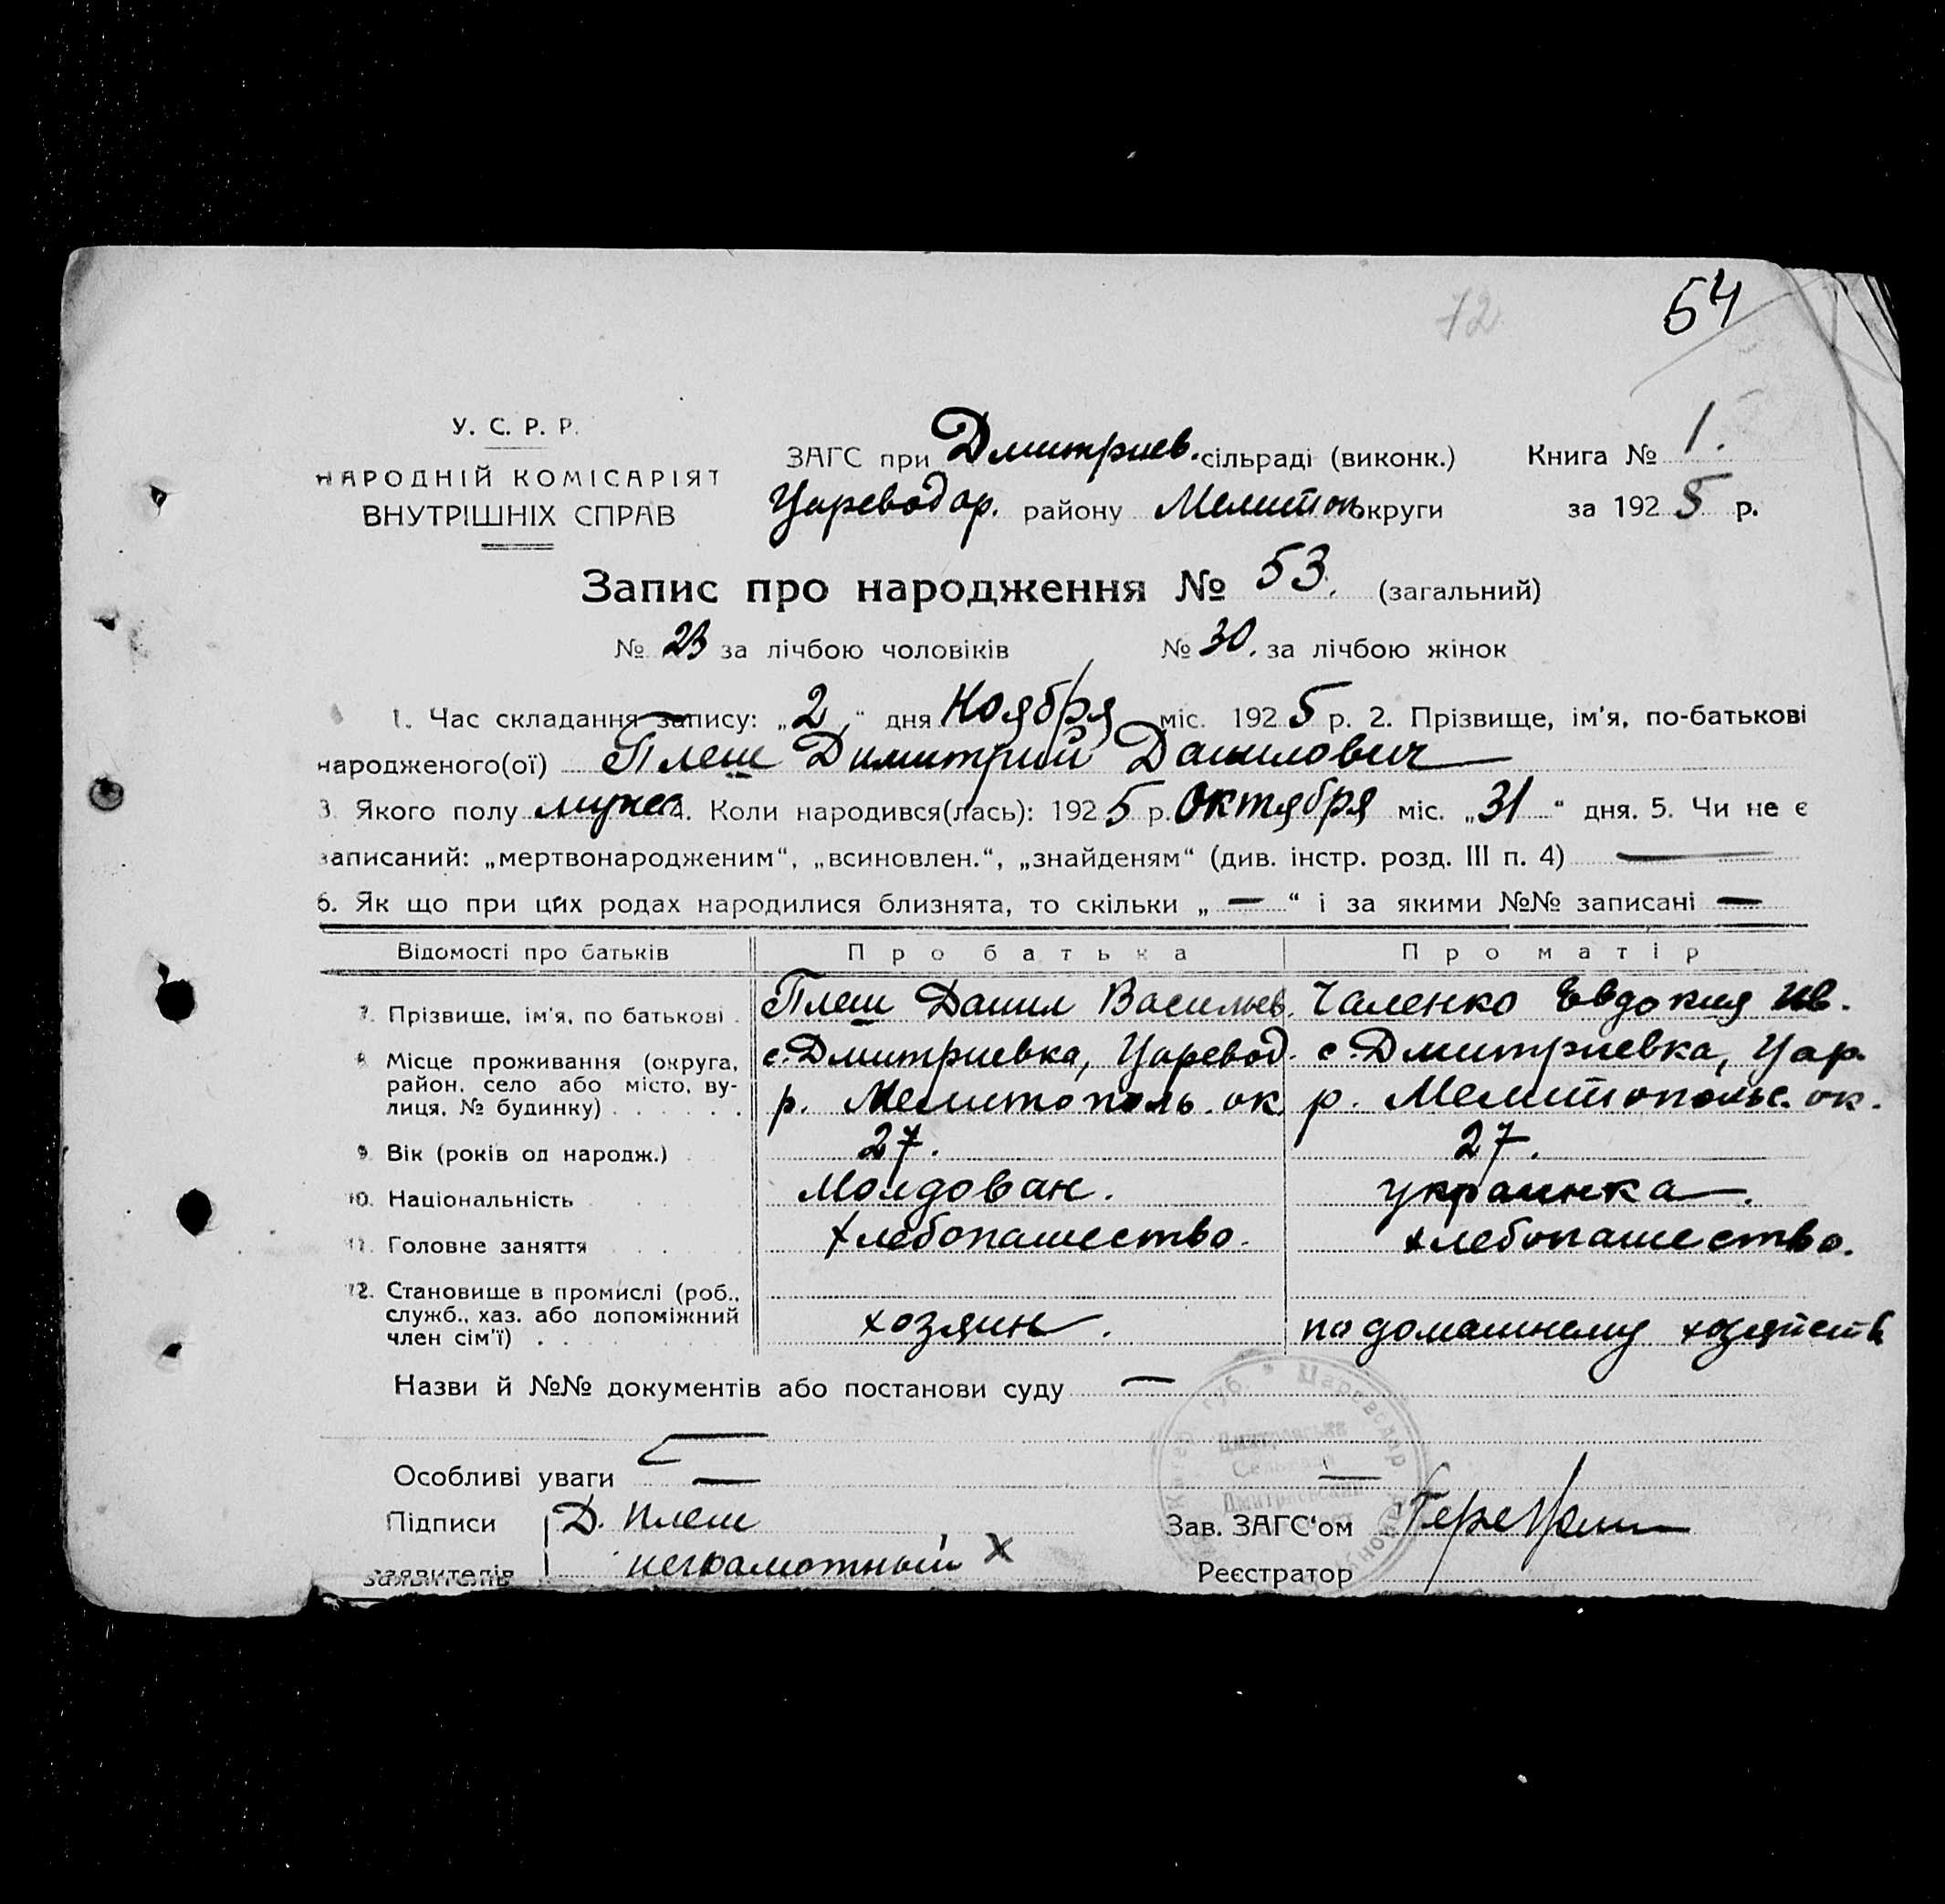 72
54
У. С. Р. Р.
НАРОДНІЙ КОМІСАРІЯТ
ВНУТРІШНІХ СПРАВ
ЗАГС при Дмитриев. сільраді (виконк.) Книга № 1.
Цареводар. району Мелитоп округи за 1925 р.
Запис про народження № 53. (загальний)
№ 23 за лічбою чоловіків № 30. за лічбою жінок
1. Час складання запису: „2“ дня Ноября міс. 1925 р. 2. Прізвище, ім'я, по-батькові
народженого(ої) Плеш Димитрий Данилович
3. Якого полу мужск 4. Коли народився(лась): 1925 р. Октября міс. „31“ дня. 5. Чи не є
записаний: „мертвонародженим“, „всиновлен.“, „знайденям“ (див. інстр. розд. III п. 4) —
6. Як що при цих родах народилися близнята, то скільки „—“ і за якими №№ записані —
Відомості про батьків Про батька Про матір
7. Прізвище, ім'я, по батькові Плеш Данил Васильев. Чаленко Евдокия Ив.
8. Місце проживання (округа, с. Дмитриевка, Царевод. с. Дмитриевка, Цар.
район, село або місто, ву-
лиця, № будинку) р. Мелитополь. ок. р. Мелитопольс. ок.
9. Вік (років од народж.) 27. 27.
10. Національність Молдован. украинка.
11. Головне заняття хлебопашество. хлебопашество.
12. Становище в промислі (роб.,
служб., хаз. або допоміжний
член сім'ї) хозяин. по домашнему хозяйств
Назви й №№ документів або постанови суду —
Особливі уваги —
Підписи Д. Плеш Зав. ЗАГС'ом
заявителів неграмотный X Реєстратор
губ. * Цареводар
Дмитровська
Сельрада